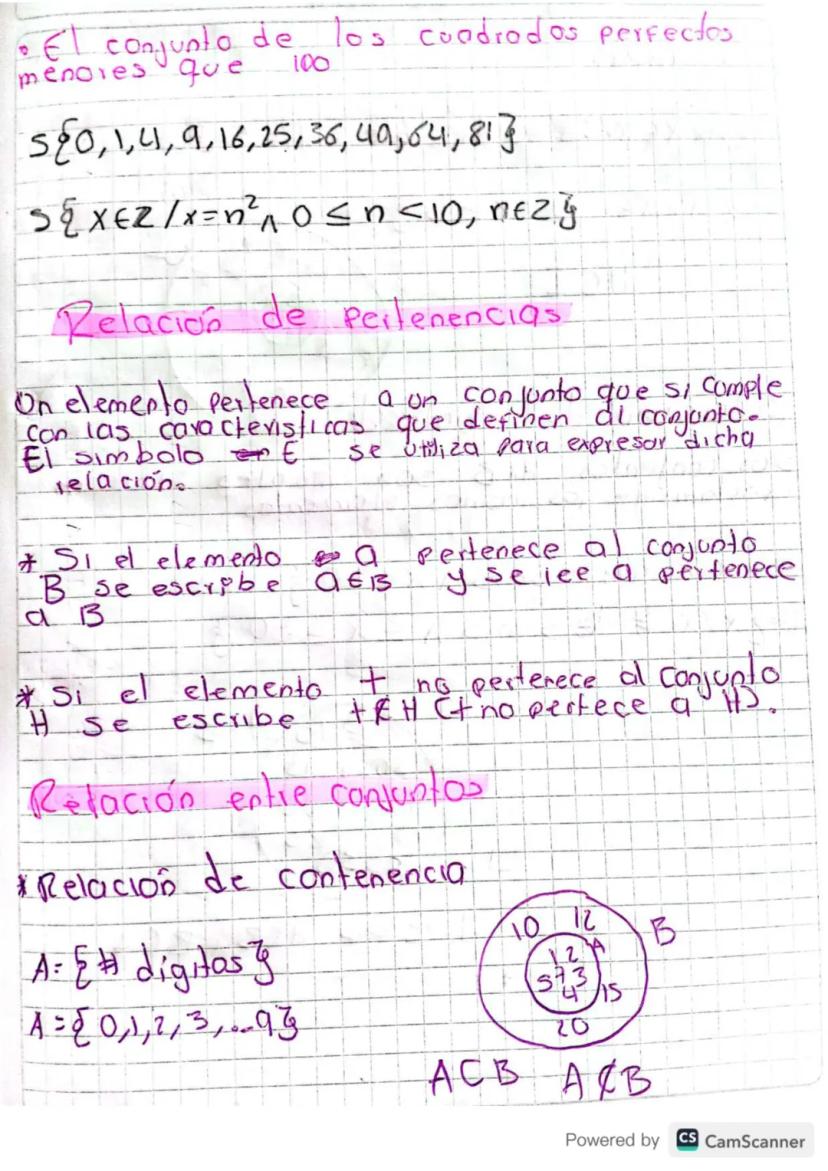 • El conjunto de los cuadrados perfectos
menores que 100
S{0,1,4,9,16,25,36,49,64,81}
S{x∈Z/x=n²∧ 0≤n<10, n∈Z}
Relación de pertenencias
Un elemento pertenece a un conjunto que si cumple
con las caracteristicas que definen al conjunto.
El simbolo ∈ se utiliza para expresar dicha
relación.
* Si el elemento a pertenece al conjunto
B se escribe a∈B y se lee a pertenece
a B
* Si el elemento t no pertenece al conjunto
H se escribe t∉H (t no pertece a H).
Relación entre conjuntos
* Relación de contenencia
A={# digitos}
A={0,1,2,3,...9}
10 12 B
1 2 A
5 7 3
4 15
20
A⊂B A⊄B
Powered by CS CamScanner